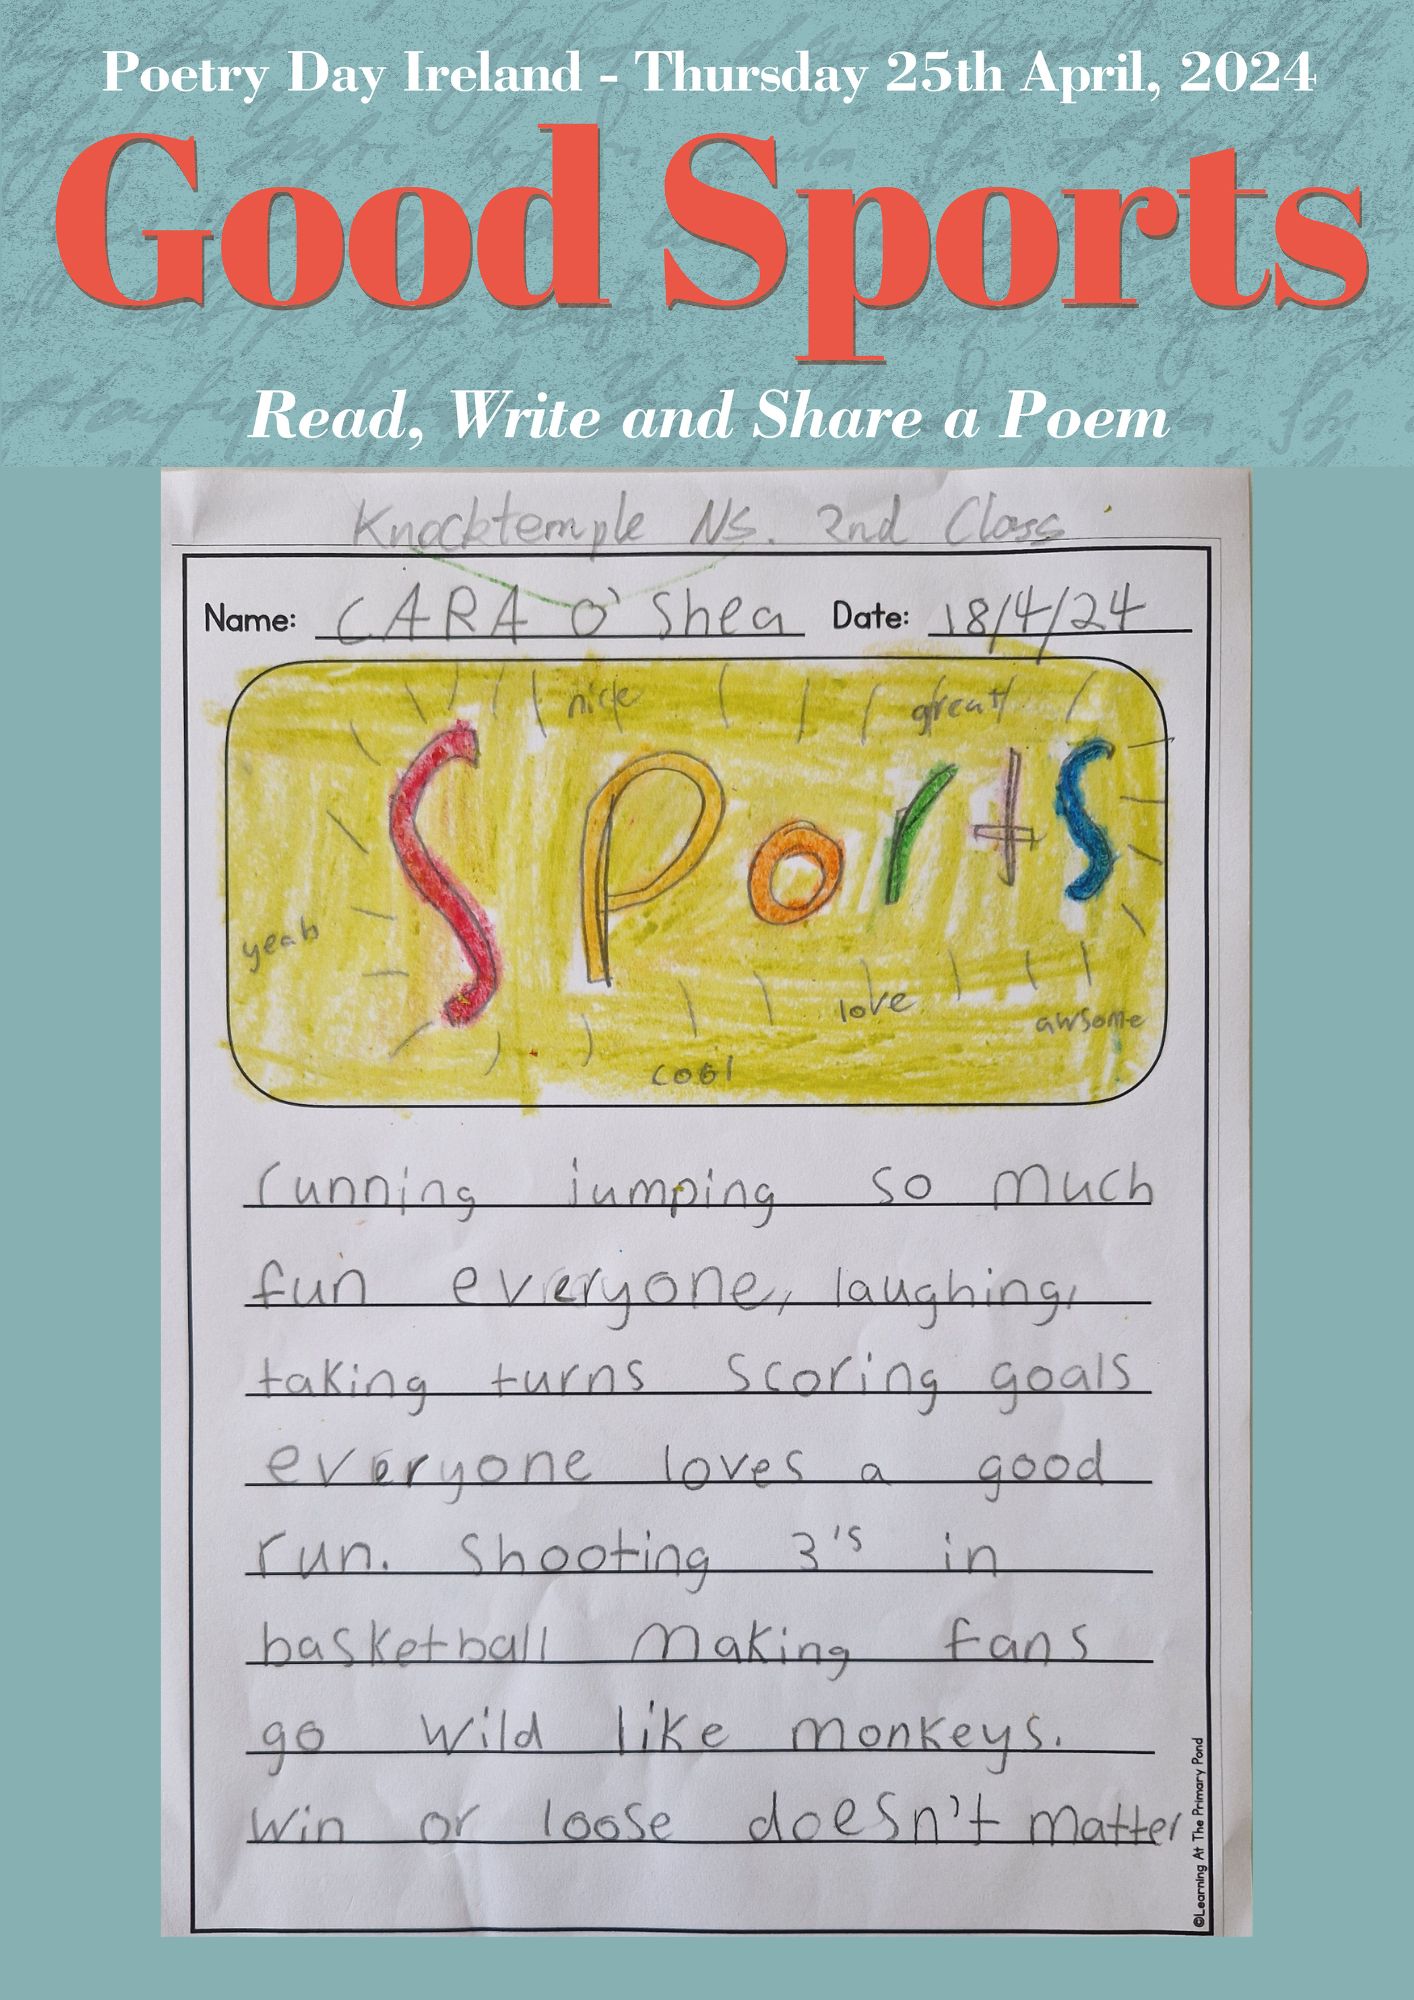 Poetry Day Ireland - Thursday 25th April, 2024
Good Sports
Read, Write and Share a Poem
Knocktemple NS. 2nd Class
Name: CARA O'Shea Date: 18/4/24
nice great
Sports
yeah
love
awsome
cool
running jumping so much
fun everyone, laughing,
taking turns scoring goals
everyone loves a good
run. Shooting 3's in
basketball making fans
go wild like monkeys.
Win or loose doesn't matter
©Learning At The Primary Pond